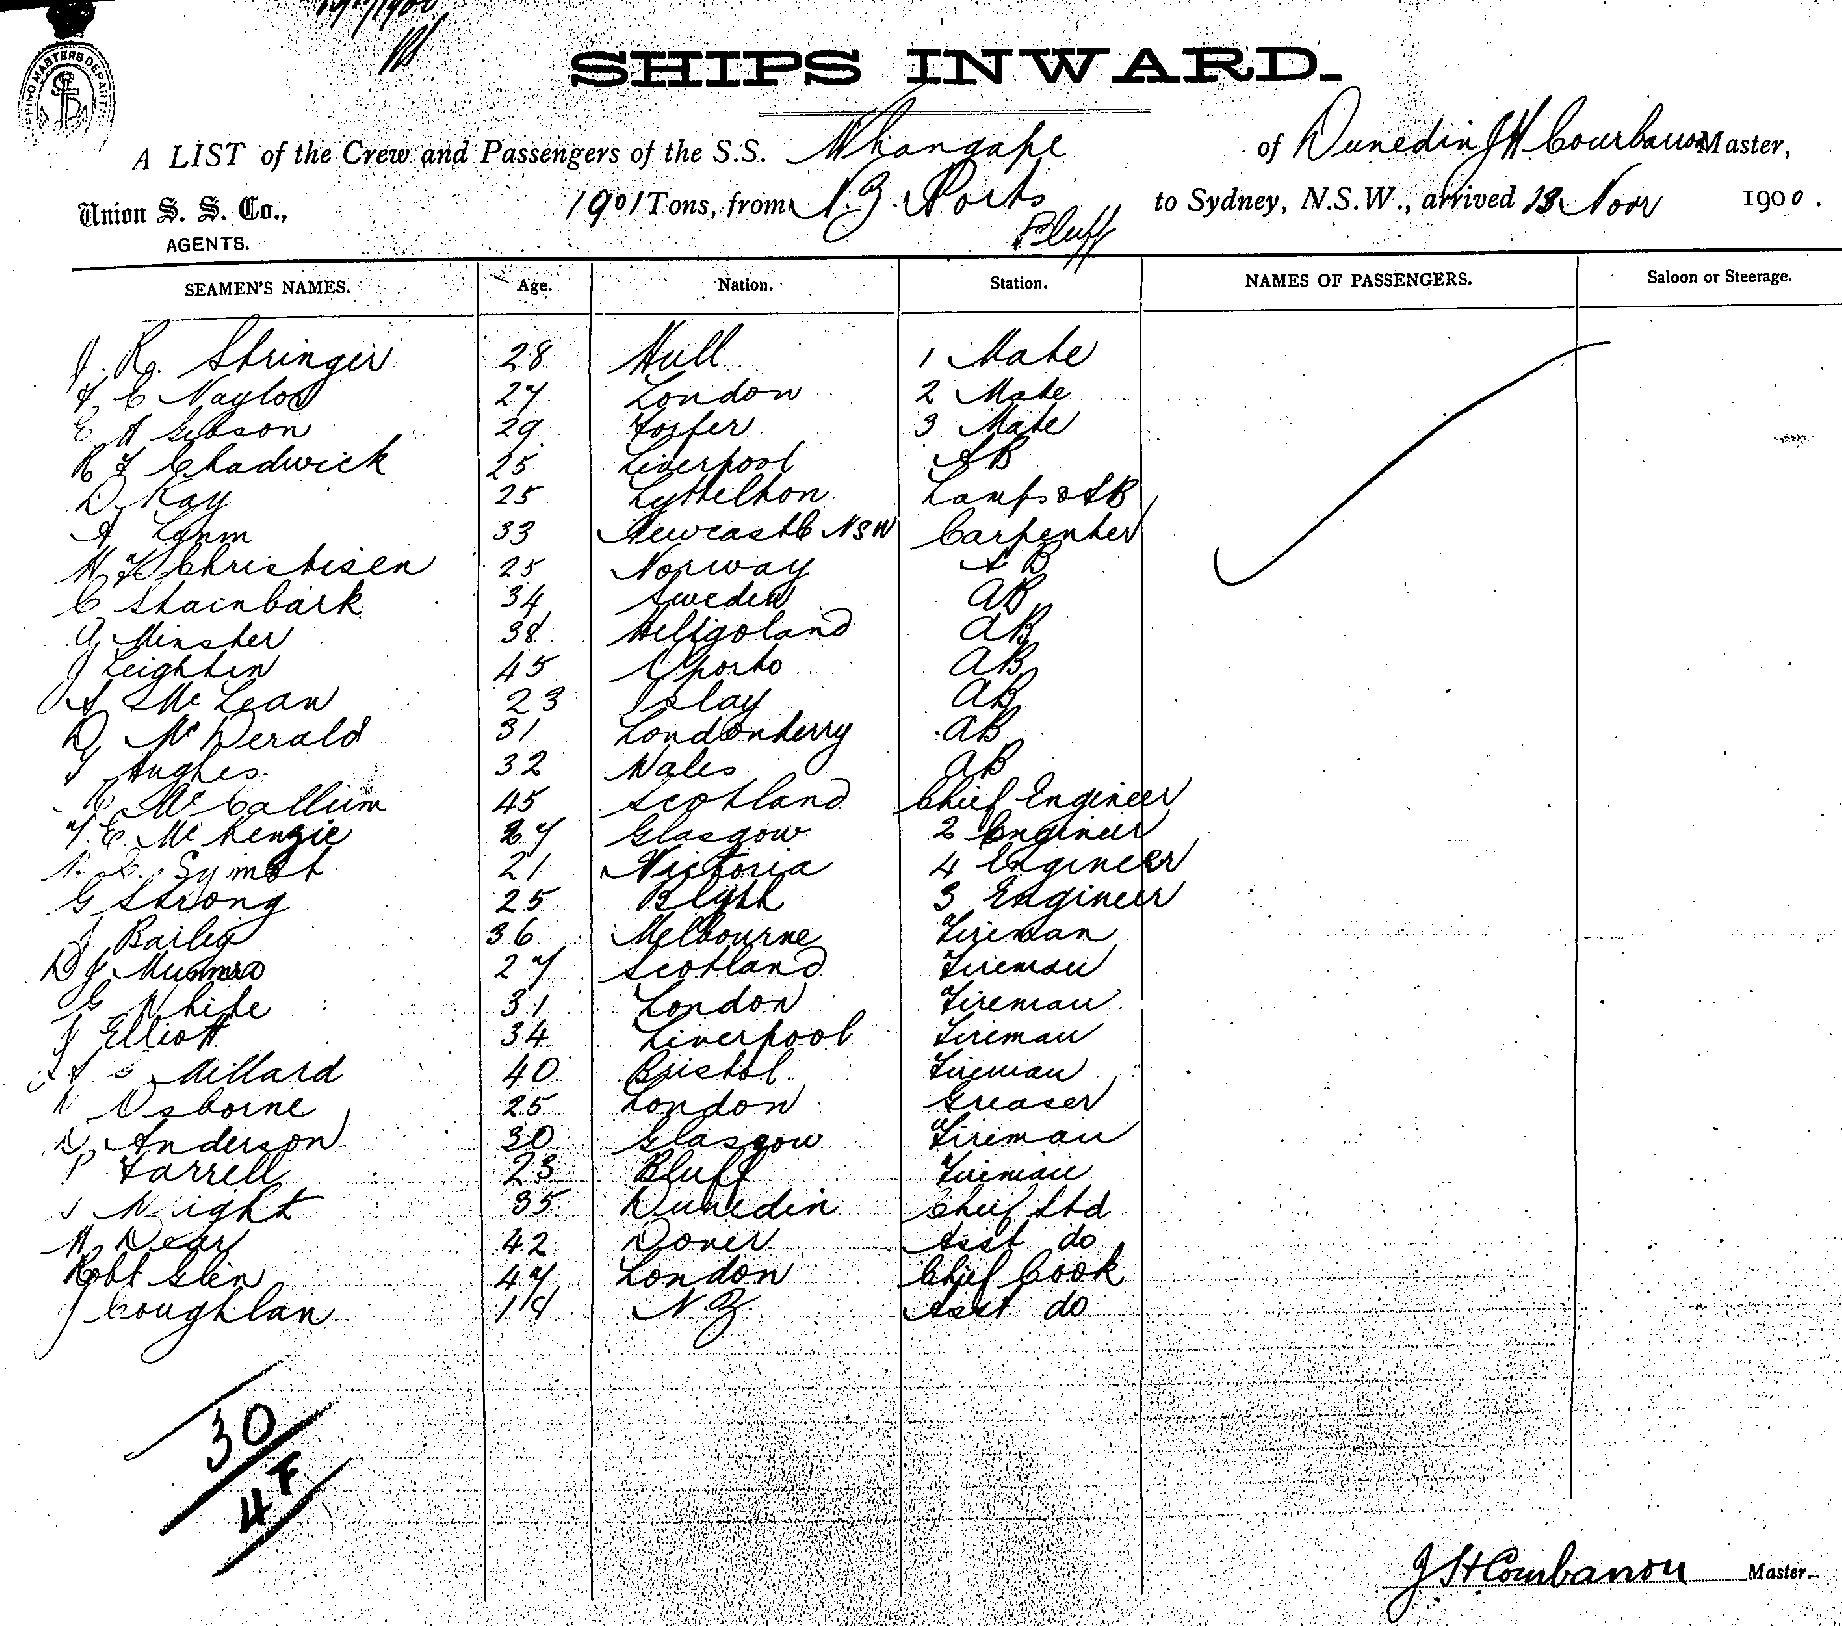 SHIPS INWARD.
A LIST of the Crew and Passengers of the S.S. Whangape of Dunedin J H Master,
Union S. S. Co., 1901 Tons, from N.Z. Ports to Sydney, N.S.W., arrived 13 Novr 1900.
AGENTS. Bluff
SEAMEN'S NAMES. Age. Nation. Station. NAMES OF PASSENGERS. Saloon or Steerage.
J. R. Stringer 28 Hull 1 Mate
C Naylor 27 London 2 Mate
E A Gibson 29 Forfer 3 Mate
R J Chadwick 25 Liverpool AB
D Kay 25 Lyttelton Lamps & AB
A 33 Newcastle NSW Carpenter
Christisen 25 Norway AB
C Stainbark 34 Sweden AB
Minster 38 Heligoland AB
J Leighten 45 Oporto AB
A McLean 23 Islay AB
D McDerald 31 Londonderry AB
Hughes 32 Wales AB
McCallum 45 Scotland Chief Engineer
McKenzie 27 Glasgow 2 Engineer
21 Victoria 4 Engineer
G Strong 25 Blyth 3 Engineer
J Bailey 36 Melbourne Fireman
D J Munro 27 Scotland Fireman
G White 31 London Fireman
J Elliott 34 Liverpool Fireman
Millard 40 Bristol Fireman
Osborne 25 London Greaser
Anderson 30 Glasgow Fireman
P Farrell 23 Bluff Fireman
Wright 35 Dunedin Chief Std
Dear 42 Dover Asst do
Robt Glen 47 London Chief Cook
J Coughlan NZ Asst do
30
4 F
J H Master.